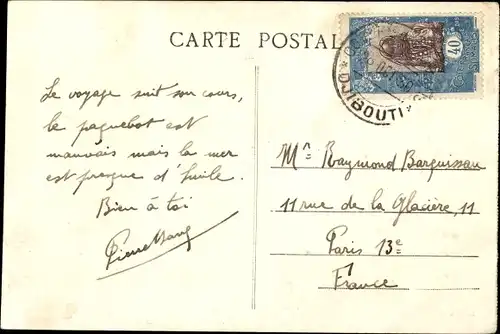 CARTE POSTAL
40
DJIBOUTI
Le voyage suit son cours,
le paquebot est
mauvais mais la mer
est presque d'huile.
Bien à toi
Mr Raymond Barquissau
11 rue de la Glacière, 11
Paris 13e
France